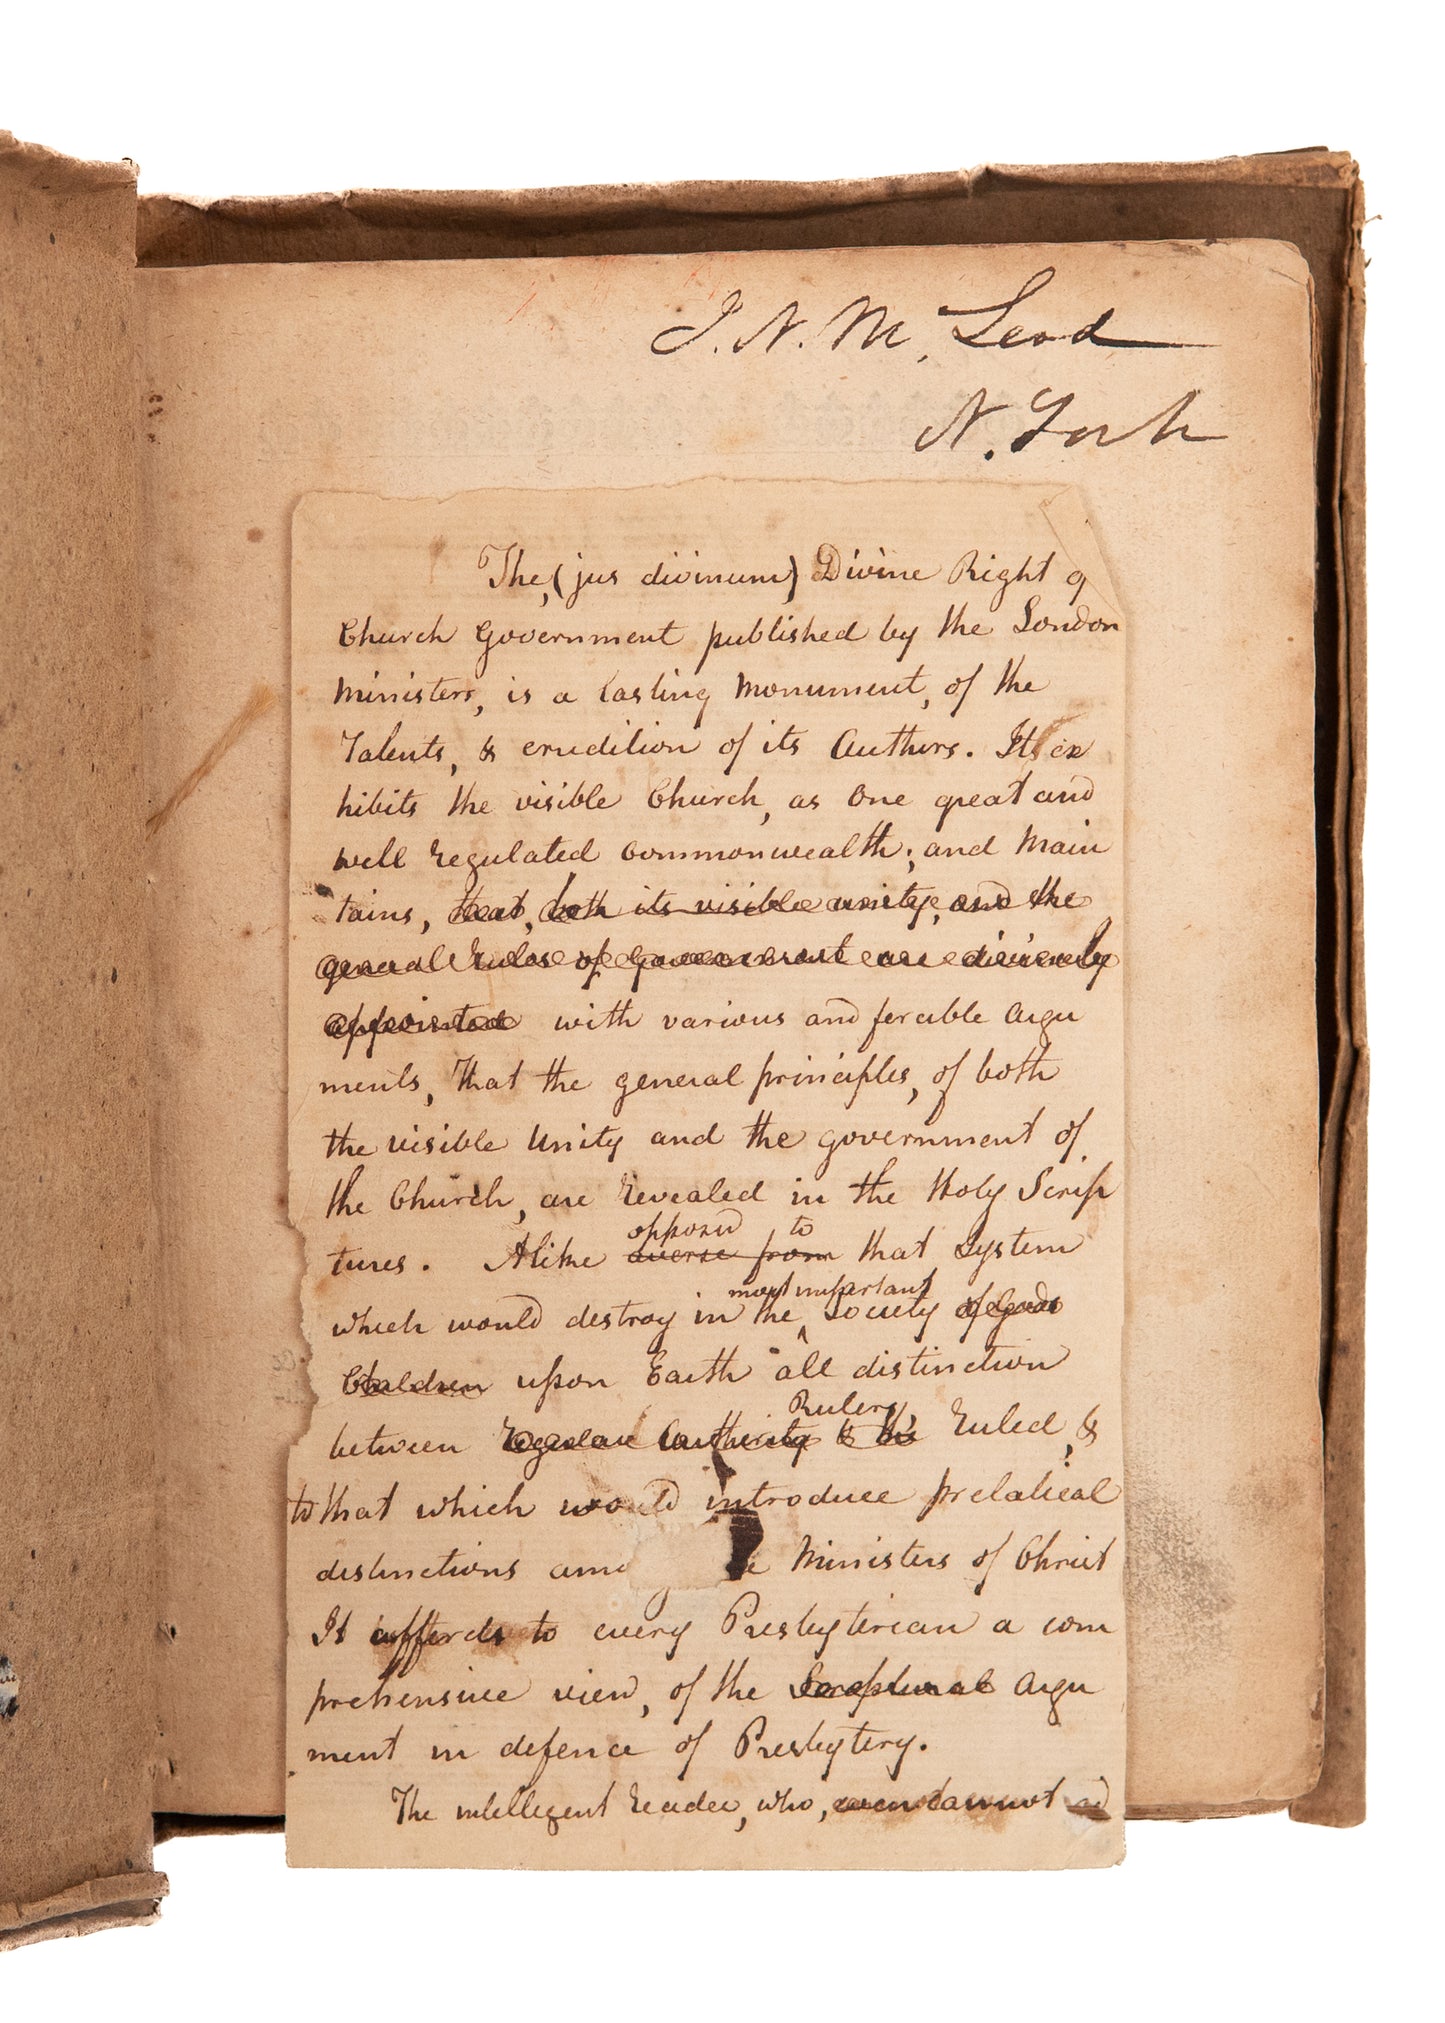 J. N. McLeod
N. York
The, (jus divinum) Divine Right of
Church Government published by the London
Ministers, is a lasting Monument, of the
Talents, & erudition of its Authors. It ex
hibits the visible Church, as One great and
well regulated Commonwealth; and Main
tains, that, both its visible unity, and the
general rules of Government are divinely
appointed with various and forcible Argu
ments, That the general principles, of both
the visible Unity and the government of
the Church, are revealed in the Holy Scrip
tures. Alike averse from that System
opposed to
which would destroy in the Society of Gods
most important
Children upon Earth all distinction
between regular authority & the Ruled, &
Rulers,
to that which would introduce prelatical
distinctions Ministers of Christ
It affords to every Presbyterian a com
prehensive view, of the Scriptural Argu
ment in defence of Presbytery.
The intelligent reader, who, even cannot